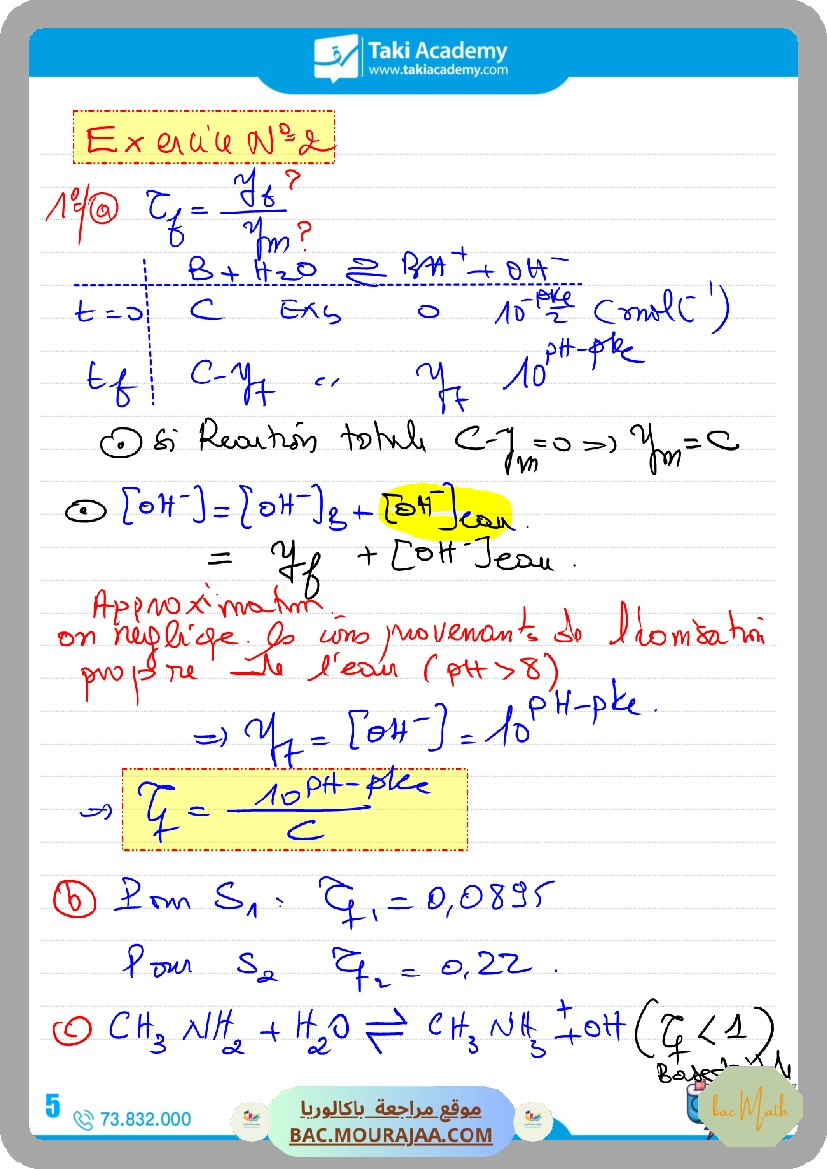 Taki Academy
www.takiacademy.com
Exercice N°2
1°/ⓐ τf = yf? / ym?
B + H2O ⇌ BH+ + OH-
t=0 C Exs 0 10^-pke/2 (mol L-1)
tf C-yf " yf 10^pH-pke
⊙ si Reaction totale C-ym=0 => ym=C
⊙ [OH-]=[OH-]B+[OH-]eau.
= yf + [OH-]eau.
Approximation
on néglige les ions provenants de l'ionisation
propre de l'eau (pH>8)
=> yf = [OH-] = 10^pH-pke.
=> τf = 10^pH-pke / C
ⓑ Pour S1. τf1 = 0,0895
Pour S2 τf2 = 0,22.
ⓒ CH3NH2 + H2O ⇌ CH3NH3+ + OH (τf < 1)
5
73.832.000
موقع مراجعة باكالوريا
BAC.MOURAJAA.COM
bac Math